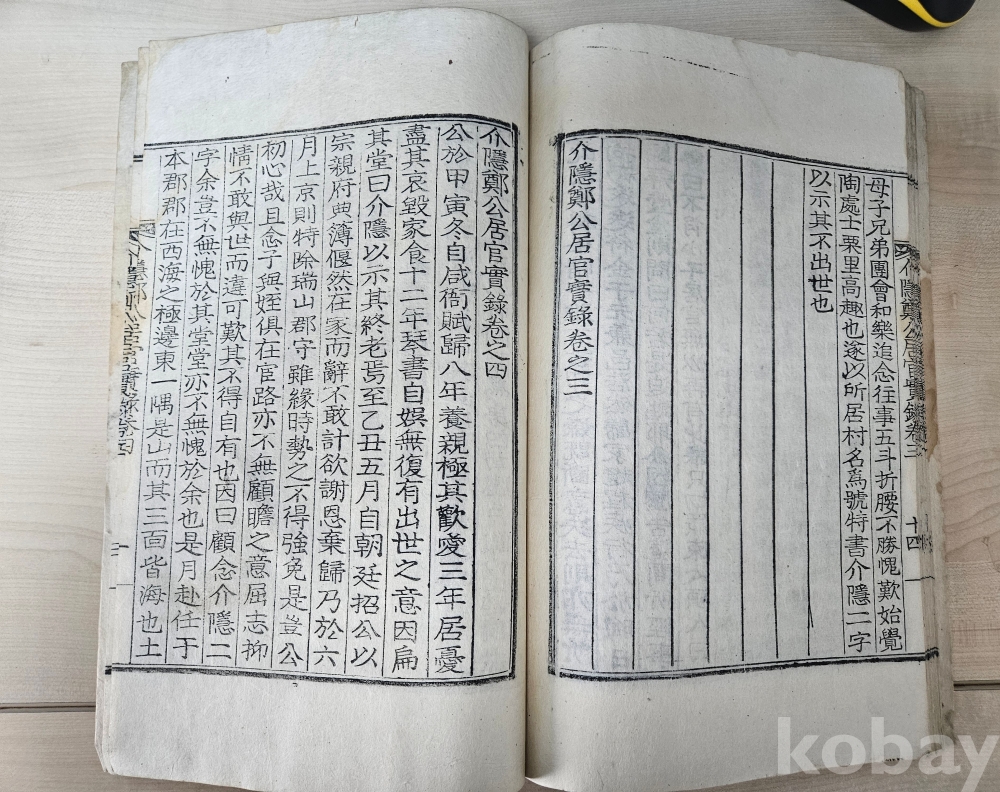 母子兄弟團會和樂追念往事五斗折腰不勝愧歎始覺
陶處士栗里高趣也遂以所居村名爲號特書介隱二字
以示其不出世也
介隱鄭公居官實錄卷之三
介隱鄭公居官實錄卷之四
公於甲寅冬自咸衙賦歸八年養親極其歡愛三年居憂
盡其哀毀家食十二年琴書自娛無復有出世之意因扁
其堂曰介隱以示其終老焉至乙丑五月自朝廷招公以
宗親府典簿偃然在家而辭不敢計欲謝恩棄歸乃於六
月上京則特除瑞山郡守雖緣時勢之不得強免是豈公
初心哉且念子與姪俱在宦路亦不無顧瞻之意屈志抑
情不敢與世而違可歎其不得自有也因曰顧念介隱二
字余豈不無愧於其堂堂亦不無愧於余也是月赴任于
本郡郡在西海之極邊東一隅是山而其三面皆海也土
kobay